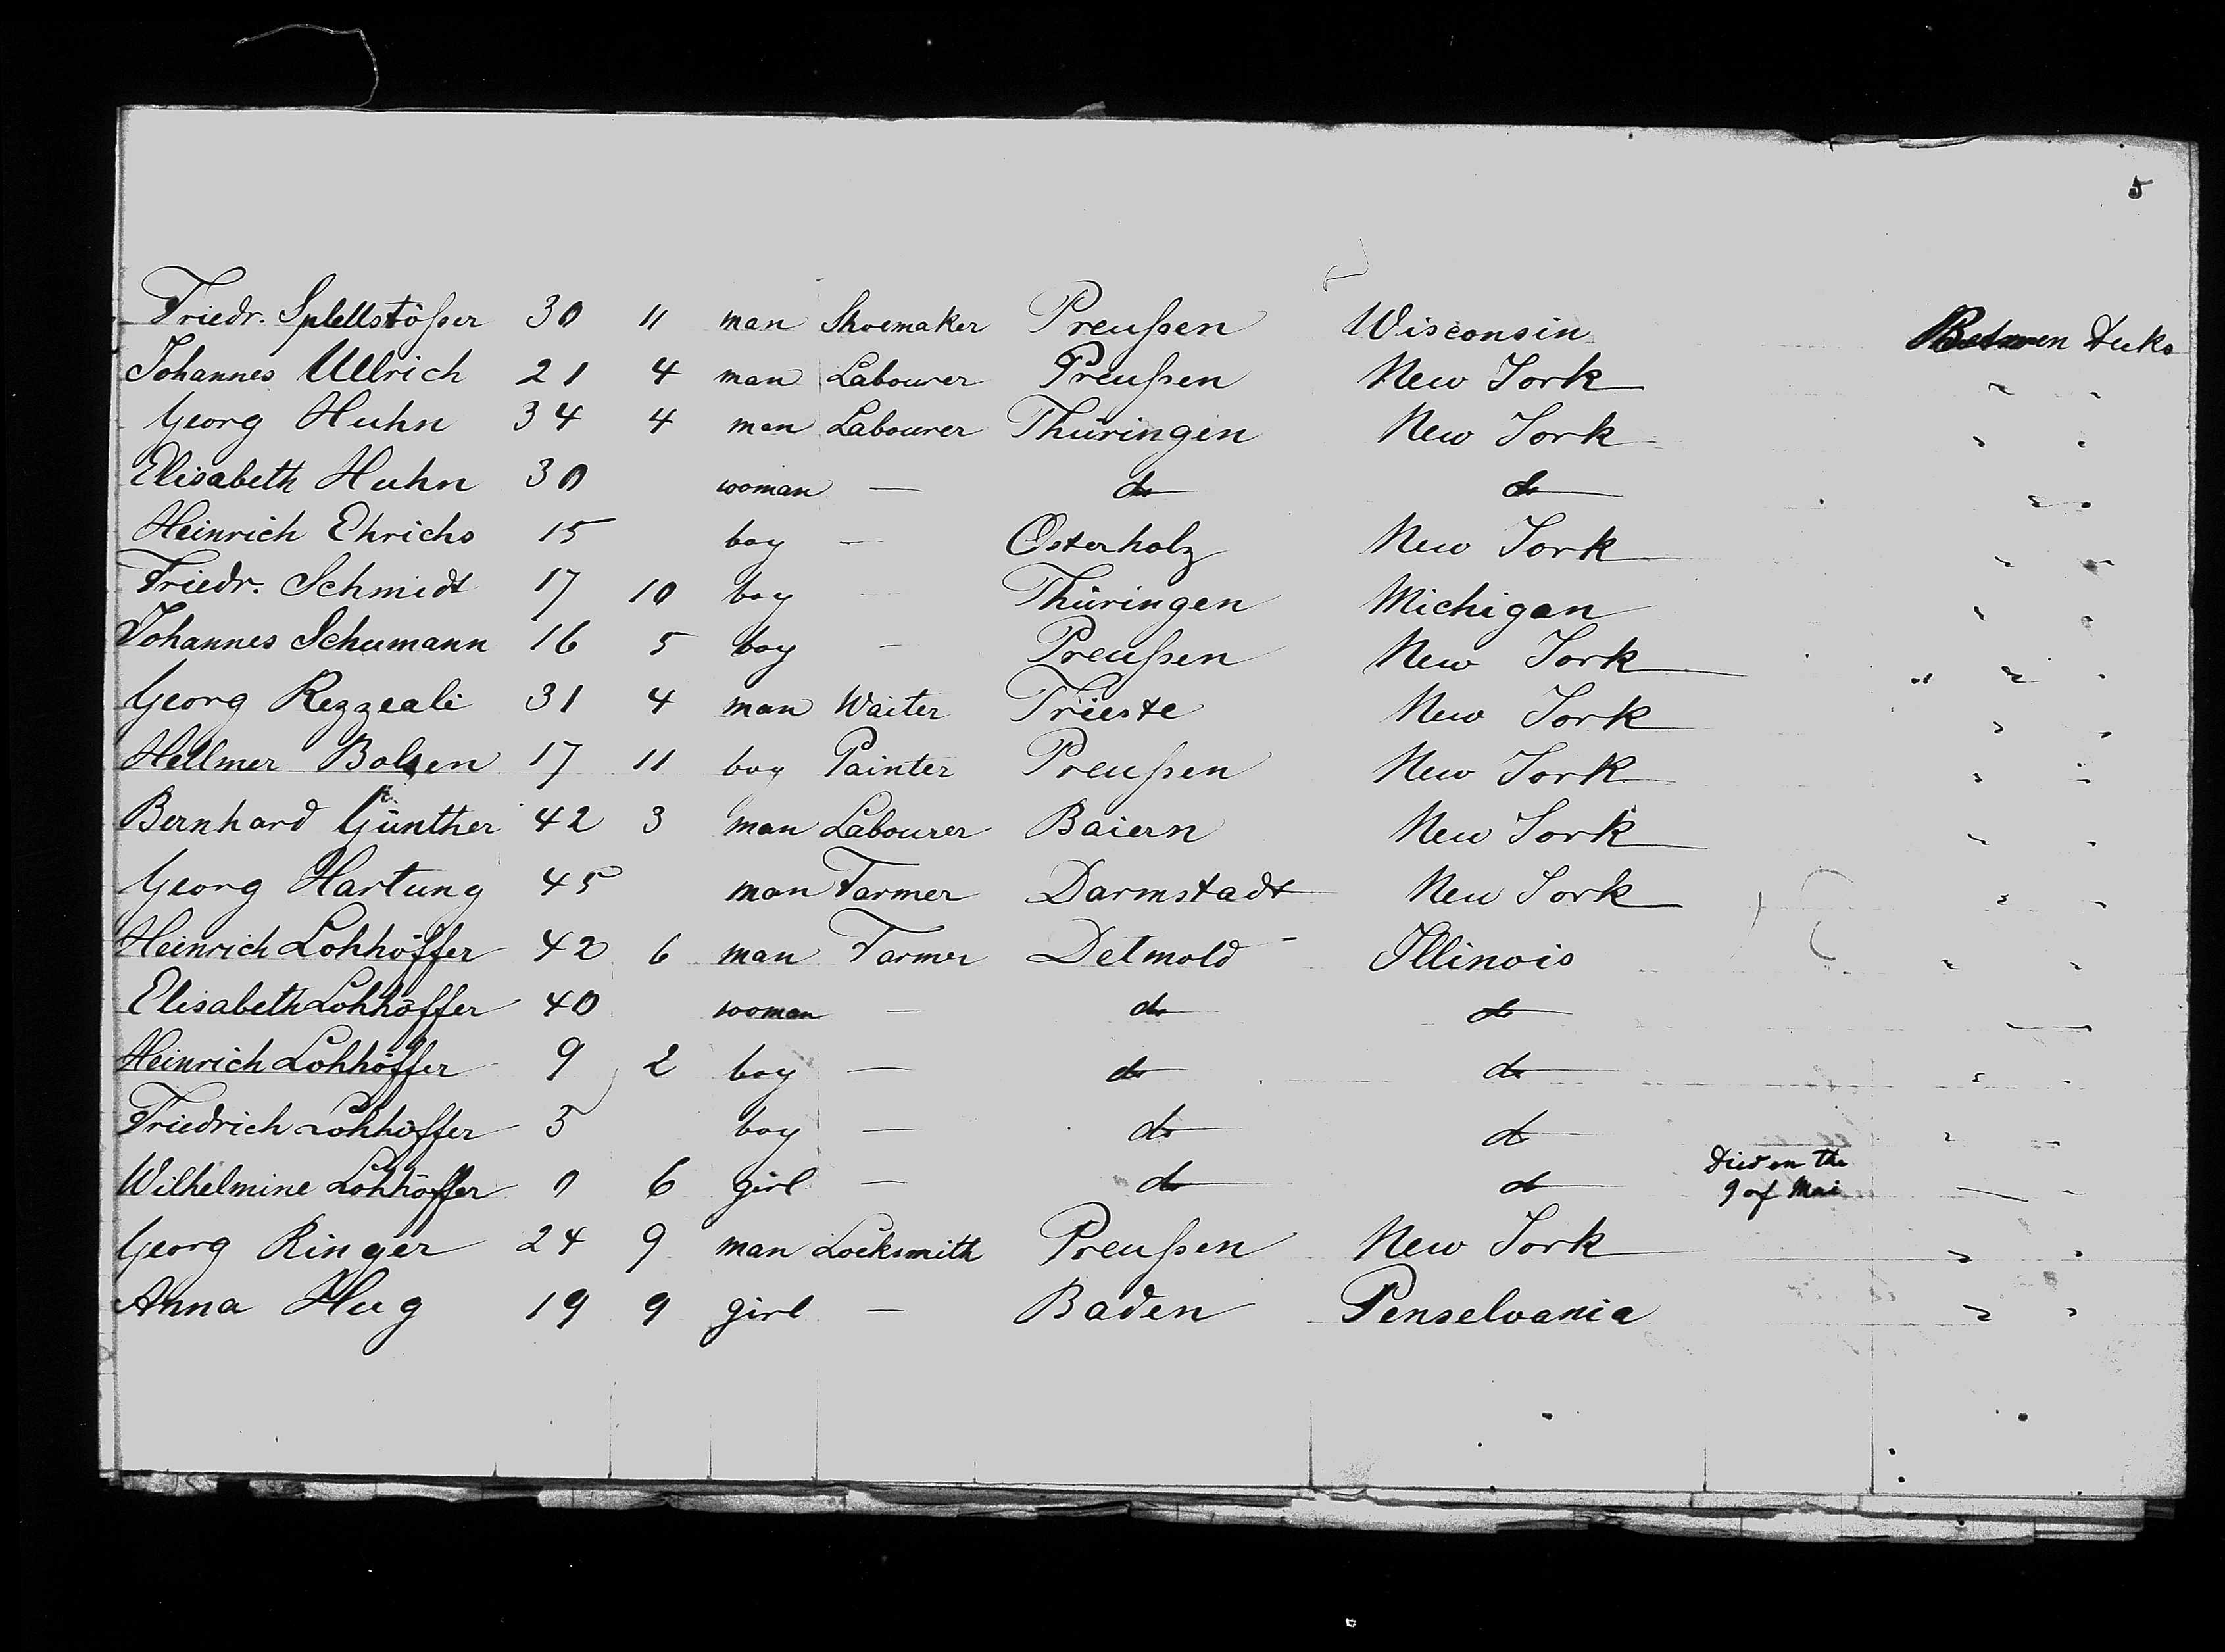 5
Friedr. Splettstößer 30 11 man Shoemaker Preußen Wisconsin Between Decks
Johannes Ullrich 21 4 man Labourer Preußen New York " "
Georg Huhn 34 4 man Labourer Thüringen New York " "
Elisabeth Huhn 30 woman — do do " "
Heinrich Ehrichs 15 boy — Osterholz New York " "
Friedr. Schmidt 17 10 boy — Thüringen Michigan " "
Johannes Schumann 16 5 boy — Preußen New York " "
Georg Rezzeali 31 4 man Waiter Trieste New York " "
Hellmer Bolsen 17 11 boy Painter Preußen New York " "
Bernhard Günther 42 3 man Labourer Baiern New York " "
Georg Hartung 45 man Farmer Darmstadt New York " "
Heinrich Lohhöffer 42 6 man Farmer Detmold Illinois " "
Elisabeth Lohhöffer 40 woman — do do " "
Heinrich Lohhöffer 9 2 boy — do do " "
Friedrich Lohhöffer 5 boy — do do " "
Wilhelmine Lohhöffer 0 6 girl — do do Died on the 9 of Mai " "
Georg Ringer 24 9 man Locksmith Preußen New York " "
Anna Hug 19 9 girl — Baden Penselvania " "